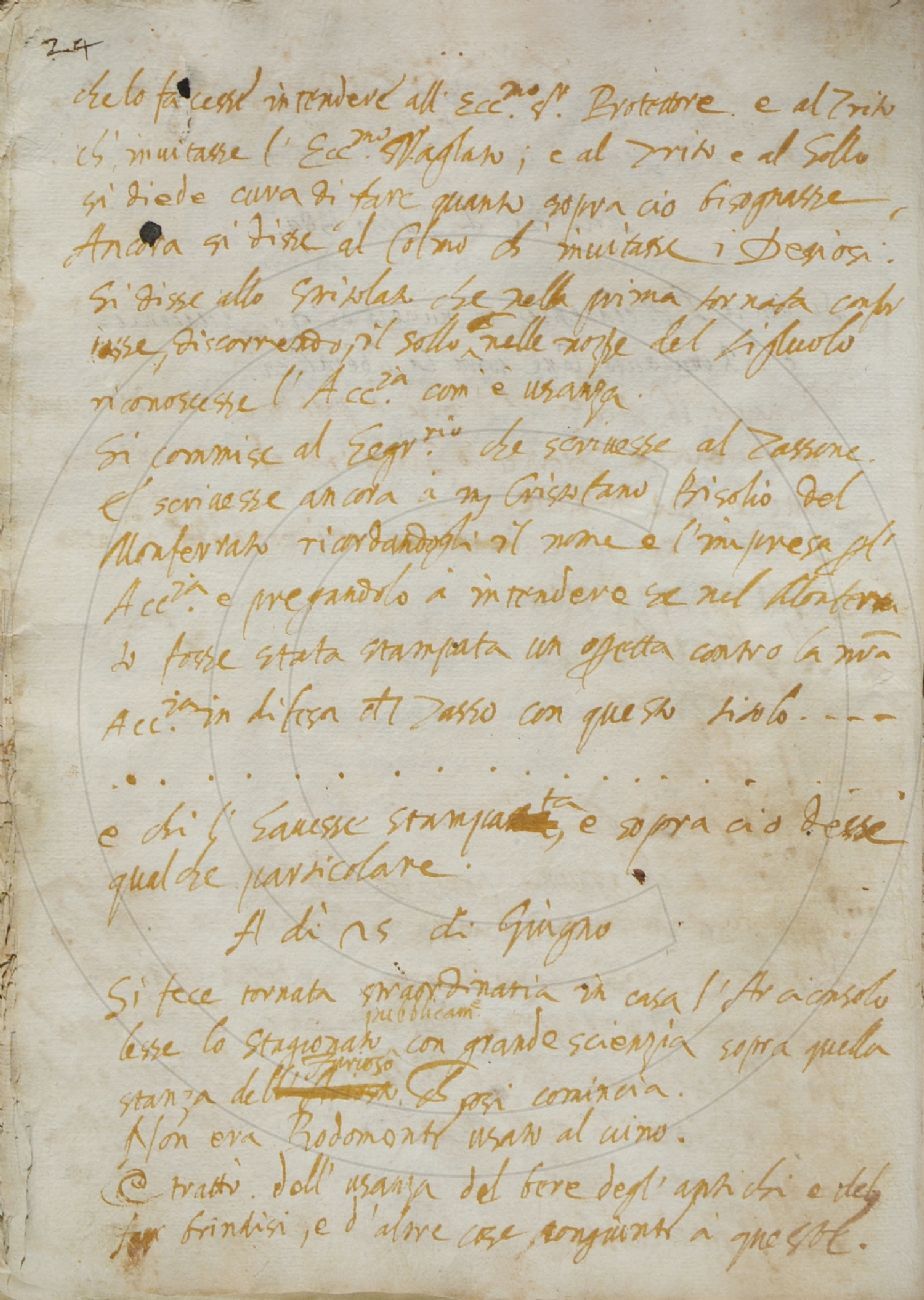 24
che lo facesse intendere all' Ecc.mo S.r Protettore e al Trito
ch' invitasse l' Ecc.mo Vaglato; e al Trito e al Sollo
si diede cura di fare quanto sopra cio bisognasse,
Ancora si disse al Colmo ch' invitasse i Desiosi.
Si disse allo Stritolato che nella prima tornata
discorrendo, il sollo nelle nozze del figluolo
riconoscesse l' Acc.ia com' è usanza.
Si commise al Segr.rio che scrivesse al Tassone.
E' scrivesse ancora à m Cristofano Bisolio del
Monferrato ricordandogli il nome e l'impresa gl'
Acc.ia e pregandolo à intendere se nel Monferra
to fosse stata stampata un opetta contro la nr̃a
Acc.ia in difesa del Tasso con questo titolo. ----
. . . . . . . . . . . . . . .
e chi l' havesse stampata, e sopra cio desse
qualche particolare.
A di 25 di Giugno
Si fece tornata straordinaria in casa l' Arciconsolo
pubblicam.e
lesse lo Stagionato con grande scienzia sopra quella
Furioso
stanza dell' che cosi comincia.
Non era Rodomonte usato al vino.
E trattò dell' usanza del bere degl' antichi e del
far brindisi, e d'altre cose congiunte à queste.